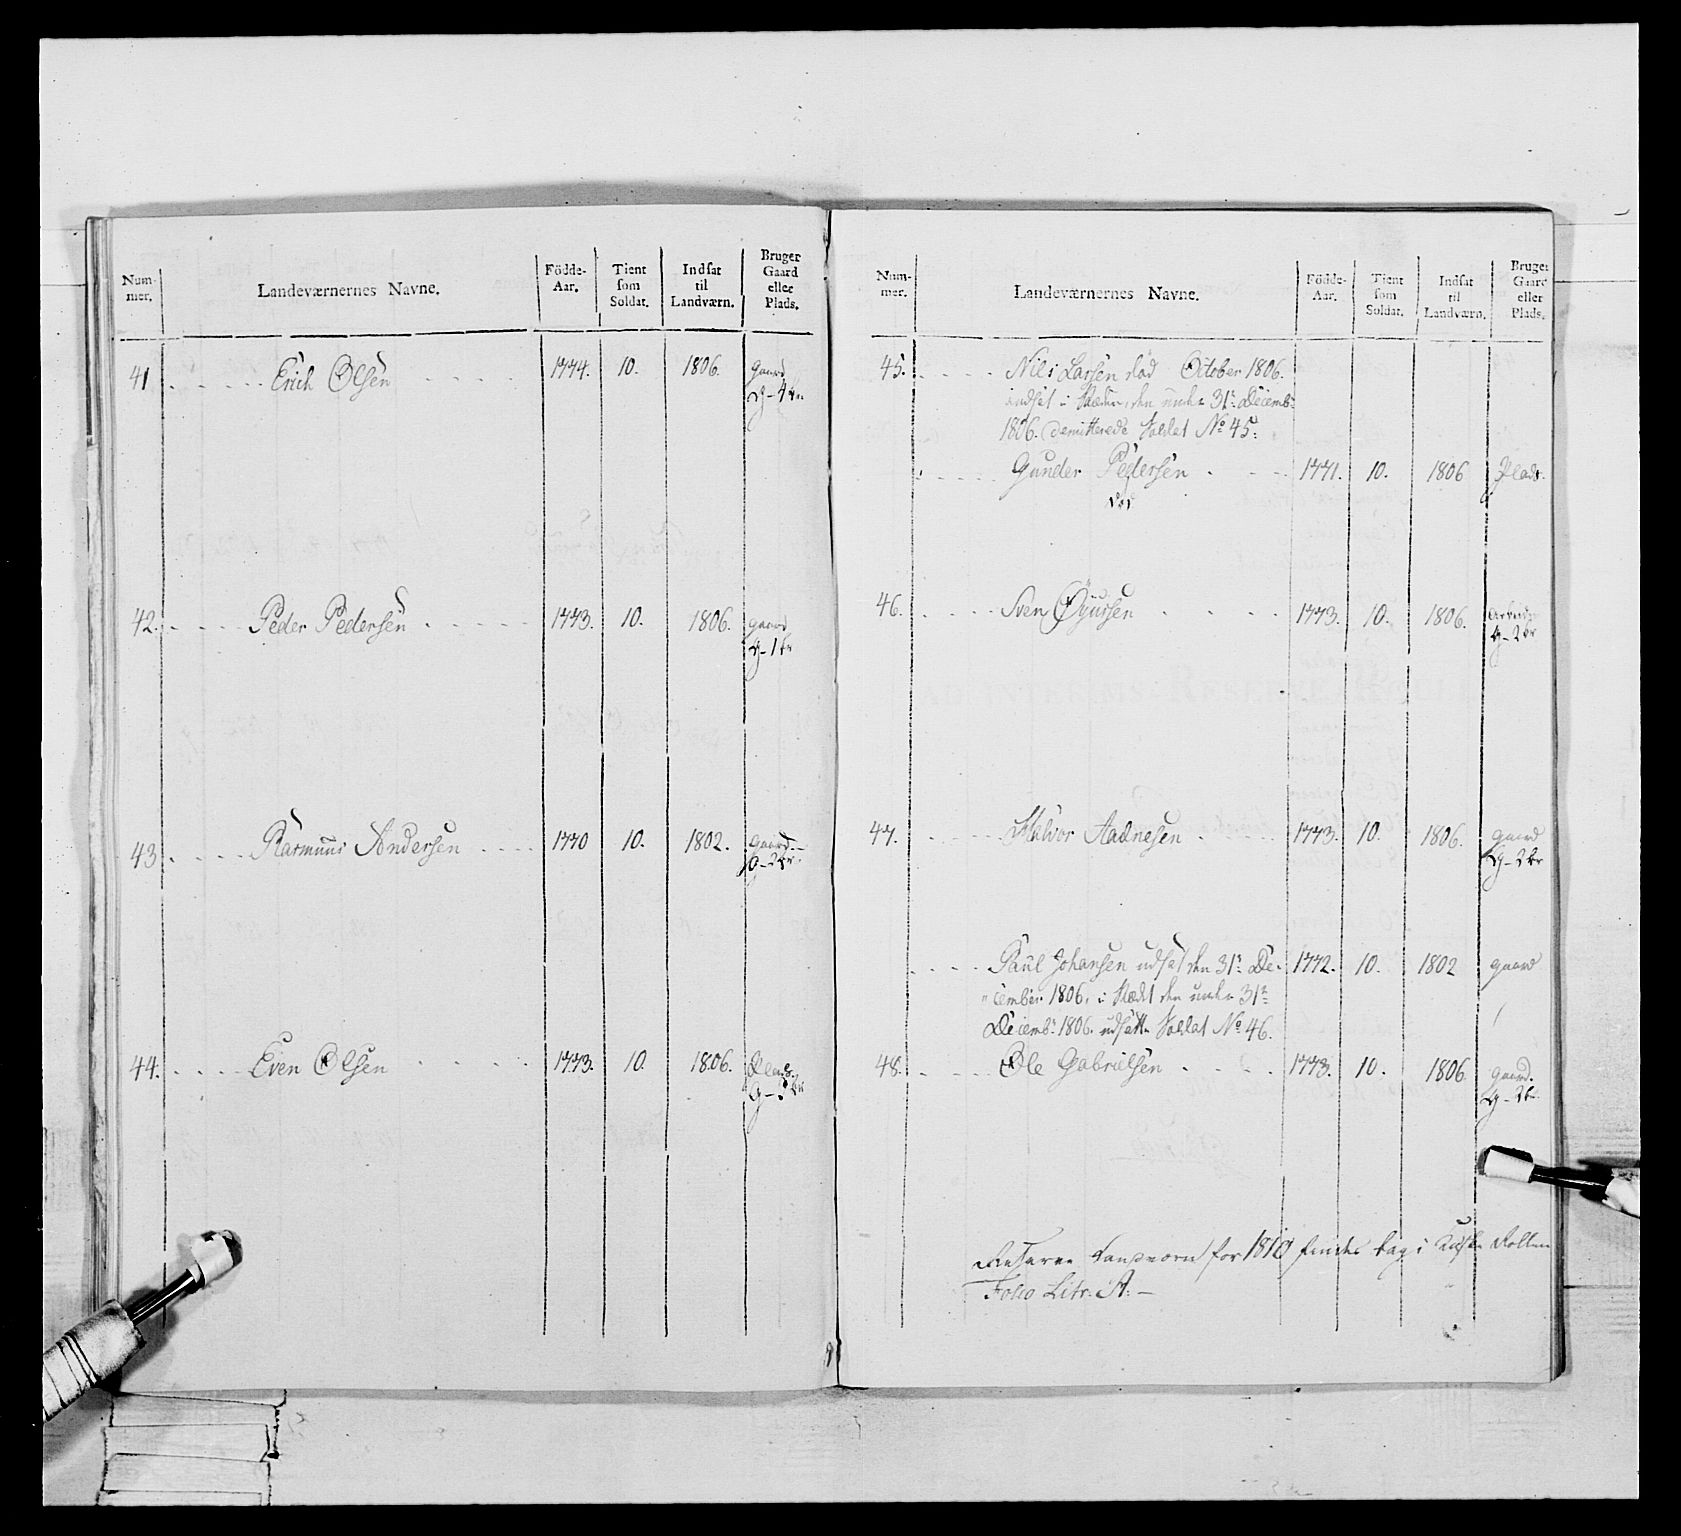 Num-
mer.
Landeværnernes Navne.
Födde-
Aar.
Tient
som
Soldat.
Indsat
til
Landværn.
Bruger
Gaard
eller
Plads.
41 Erich Olsen 1774. 10. 1806. Gaard
G-4
42. Peder Pedersen 1773. 10. 1806. gaard
G-1
43. Rasmuus Andersen 1770 10. 1802. gaard
G-2
44. Even Olsen 1773. 10. 1806. Plads.
G-
Num-
mer.
Landeværnernes Navne.
Födde-
Aar.
Tient
som
Soldat.
Indsat
til
Landværn.
Bruger
Gaard
eller
Plads.
45. Nils Larsen død October 1806.
indsat i Stæden, den under 31te Decembr
1806. demitterede Soldat No 45:
Gunder Pedersen 1771. 10. 1806 Plads.
død
46. Sven 1773. 10. 1806.
G-2
47. Halvor Aadnesen 1773. 10. 1806. gaard
G-2
Paul Johansen udsat den 31te De- 1772. 10. 1802 gaard
cember 1806. i Stædet den under 31te
Decembr 1806. udsatte Soldat No 46.
48. Ole Gabrielsen 1773. 10. 1806. gaard.
G-2
Reserve Landværn for 1810 findes bag i Rollen
Folio Litr: A: —